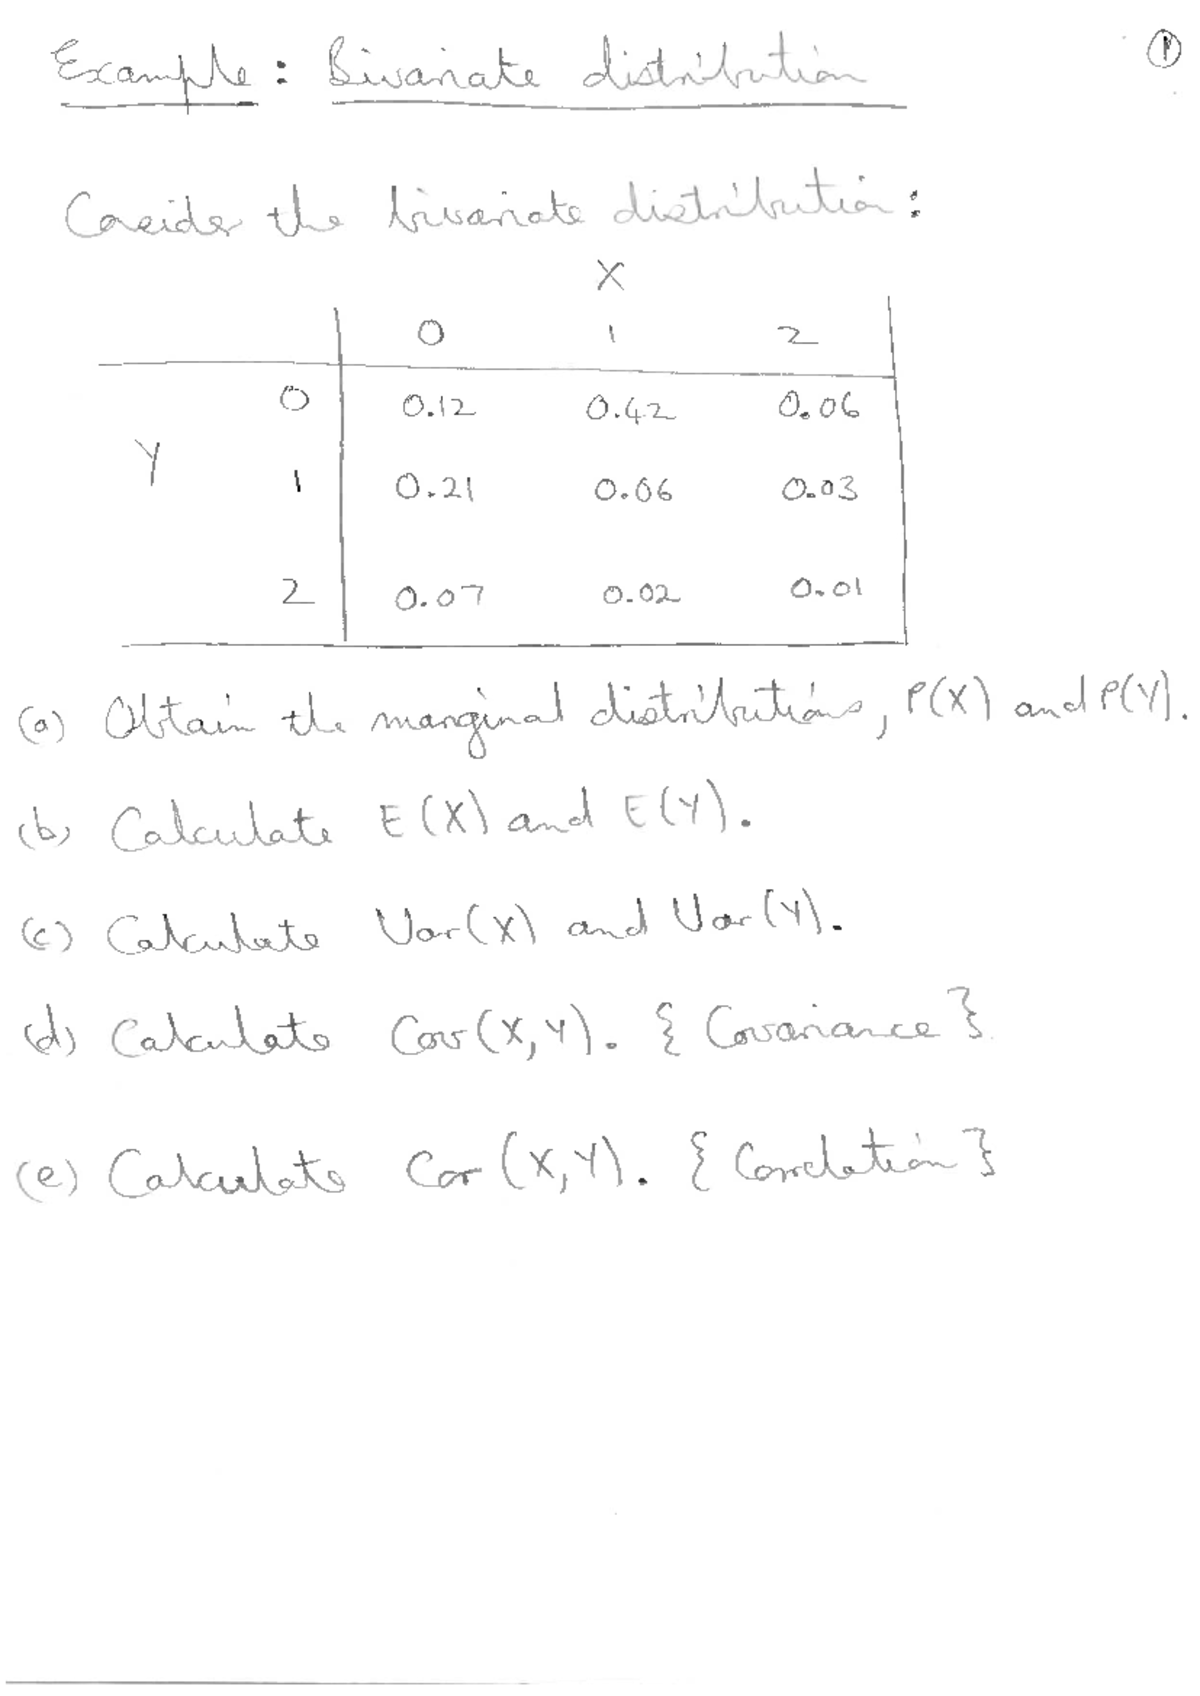 Example: Bivariate distribution
1
Consider the bivariate distribution:
X
0 1 2
0 0.12 0.42 0.06
Y
1 0.21 0.06 0.03
2 0.07 0.02 0.01
(a) Obtain the marginal distributions, P(X) and P(Y).
(b) Calculate E(X) and E(Y).
(c) Calculate Var(X) and Var(Y).
(d) Calculate Cov(X,Y). { Covariance }
(e) Calculate Cor(X,Y). { Correlation }